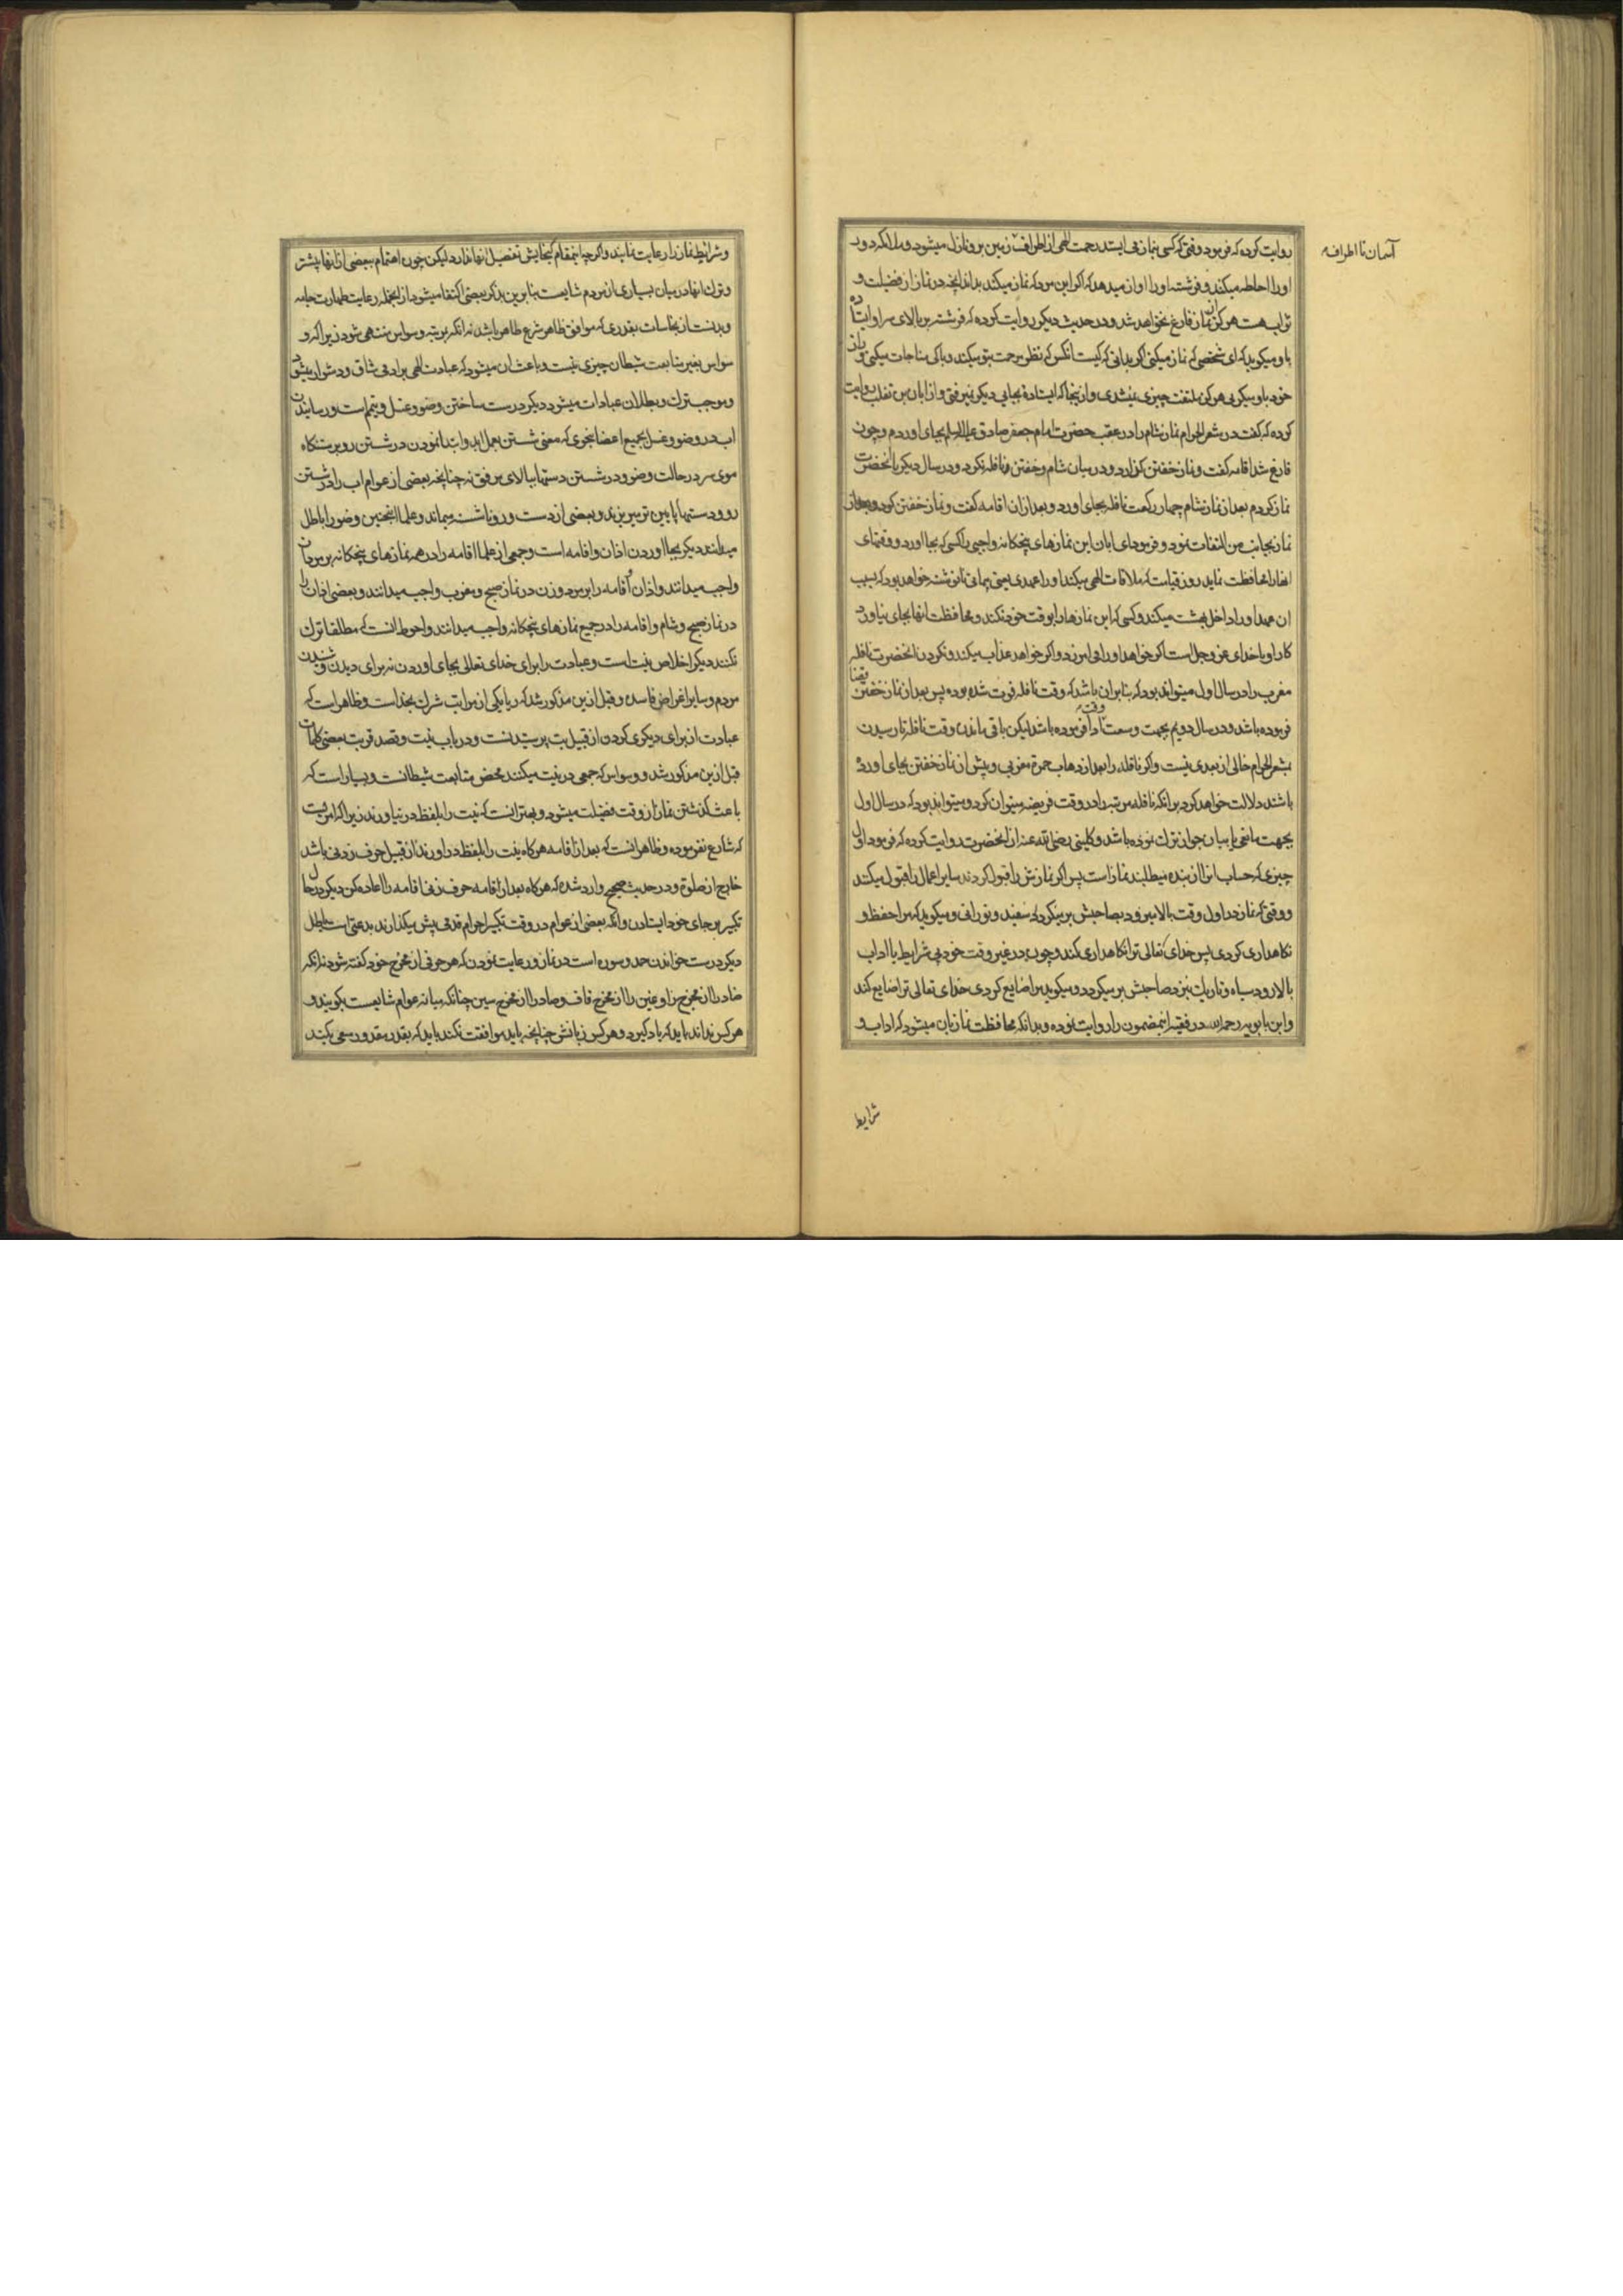 روایت کرده که فرمود وقتی که کسی بنماز می ایستد رحمت الهی از اطراف زمین برو نازل میشود و ملائکه دور
آسمان تا اطرافه
او را احاطه میکنند و فرشته او را اواز میدهد که اگر این مرد که نماز میکند بداند انچه در نماز از فضیلت و
ثواب هست هرگز از نماز فارغ نخواهد شد و در حدیث دیگر روایت کرده که فرشته بر بالای سر او ایستاده
باو میکوید که ای شخصی که نماز میکنی اگر بدانی که کیست انکس که نظر برحمت بتو میکند و با کی مناجات میکنی و راز
خود باو میکویی هرگز ملتفت چیزی نیشدی و از ینجا که ایستادهٔ بجایی دیکر نمیرفتی و از ابان بن تغلب روایت
کرده که گفت در مشعر الحرام نماز شام را در عقب حضرت امام جعفر صادق علیه السلم بجای اوردم و چون
فارغ شد اقامه کفت و نماز خفتن کزارد و در میان شام و خفتن نافله نکرد و در سال دیکر با انحضرت
نماز کردم بعد از نماز شام چهار رکعت نافله بجای اورد و بعد ازان اقامه کفت و نماز خفتن کرد و بعد از
نماز بجانب من التفات نمود و فرمود ای ابان این نمازهای پنجکانه واجبی را کسی که بجا اورد و وقتهای
انها را محافظت نماید روز قیامت که ملاقات الهی میکند او را عهدی یعنی پیمانی نامه نوشته خواهد بود که بسبب
ان عهد او را داخل بهشت میکند و کسی که این نمازها را بوقت خود نکند و محافظت انها بجای نیاورد
کار او با خدای عز و جل است اگر خواهد او را می امرزد و اگر خواهد عذاب میکند و نکردن انحضرت نافله
مغرب را در سال اول میتواند بود که بنابران باشد که وقت نافله فوت شده بوده پس بعد از نماز خفتن قضا
فرموده باشد و در سال دویم بجهت وسعت وقت ادا فرموده باشد لیکن باقی ماندن وقت نافله تا رسیدن
بمشعر الحرام خالی از بعدی نیست و اگر نافله را بعد از ذهاب حمرهٔ مغربی و پیش از نماز خفتن بجای اورده
باشند دلالت خواهد کرد بر انکه نافله مرتبه را در وقت فریضه میتوان کرد و میتواند بود که در سال اول
بجهت مانعی یا بیان جواز ترک نموده باشد و کلینی رضی الله عنه از انحضرت روایت کرده که فرمود اول
چیزی که حساب انرا از بنده میطلبند نماز است پس اگر نمازش را قبول کردند سایر اعمال را قبول میکند
و وقتی که نماز در اول وقت بالا میرود بصاحبش بر میکردد سفید و نورانی و میکوید که مرا حفظ و
نکاهداری کردی پس خدای تعالی ترا نکاهداری کند و چون در غیر وقت خود بی شرایط یا اداب
بالا رود سیاه و تاریک بنزد صاحبش بر میکردد و میکوید مرا ضایع کردی خدای تعالی ترا ضایع کند
و ابن بابویه رحمه الله در فقیه اینمضمون را روایت نموده و بدانکه محافظت نماز بان میشود که اداب و
شرایط
و شرایط نماز را رعایت نمایند و اگر چه اینمقام کنجایش تفصیل انها ندارد لیکن چون اهتمام ببعضی از انها بیشتر
و ترک انها در میان بسیاری از مردم شایعست بنابرین بذکر بعضی اکتفا میشود از انجمله رعایت طهارت جامه
و بدنست از نجاسات بقدری که موافق ظاهر شرع طاهر باشد نه انکه بمرتبه وسواس منتهی شود زیرا که و
سواس بغیر متابعت شیطان چیزی نیست و باعث ان میشود که عبادت الهی بر ادمی شاق و دشوار میشود
و موجب ترک و بطلان عبادات میشود دیکر درست ساختن وضو و غسل و تیمم است و رسانیدن
اب در وضو و غسل بجمیع اعضا بنحوی که معنی شستن بعمل اید و ابتدا نمودن در شستن رو برستنکاه
موی سر در حالت وضو و در شستن دستها ببالای مرفق نه چنانچه بعضی از عوام اب را در شستن
رو و دستها پایین تر میریزند و بعضی از دست و رو ناشسته میماند و علما اینچنین وضو را باطل
میدانند دیکر بجا اوردن اذان و اقامه است و جمعی از علما اقامه را در همه نمازهای پنجکانه بر مردان
واجب میدانند و اذان و اقامه را بر مرد و زن در نماز صبح و مغرب واجب میدانند و بعضی اذان را
در نماز صبح و شام و اقامه را در جمیع نمازهای پنجکانه واجب میدانند و احوط انست که مطلقا ترک
نکنند دیکر اخلاص نیت است و عبادت را برای خدای تعالی بجای اوردن نه برای دیدن و شنیدن
مردم و سایر اغراض فاسده و قبل ازین مذکور شد که ریا یکی از مراتب شرک بخداست و ظاهر است که
عبادت از برای دیکری کردن از قبیل بت پرستیدنست و در باب نیت و قصد قربت بعضی کلمات
قبل ازین مذکور شد و وسواس که جمعی در نیت میکنند محض متابعت شیطانست و بسیار است که
باعث کذشتن نماز از وقت فضیلت میشود و بهتر انست که نیت را بلفظ در نیاورند زیرا که امریست
که شارع نفرموده و ظاهر انست که بعد از اقامه هر کاه نیت را بلفظ در اورند از قبیل حرف زدنی باشد
خارج از صلوة و در حدیث صحیح وارد شده که هر کاه بعد از اقامه حرف زنی اقامه را اعاده کن دیکر در حال
تکبیر بر جای خود ایستادن و انکه بعضی از عوام در وقت تکبیر احرام قدمی پیش میکذارند بدعتی است باطل
دیکر درست خواندن حمد و سوره است در نماز و رعایت نمودن که هر حرفی از مخرج خود کفته شود نه انکه
ضاد را از مخرج زا و غین را از مخرج قاف و صاد را از مخرج سین چنانکه میانه عوام شایعست بکویند و
هر کس نداند باید که یاد کیرد و هر کس زبانش چنانچه باید موافقت نکند باید که بقدر مقدور سعی بکند